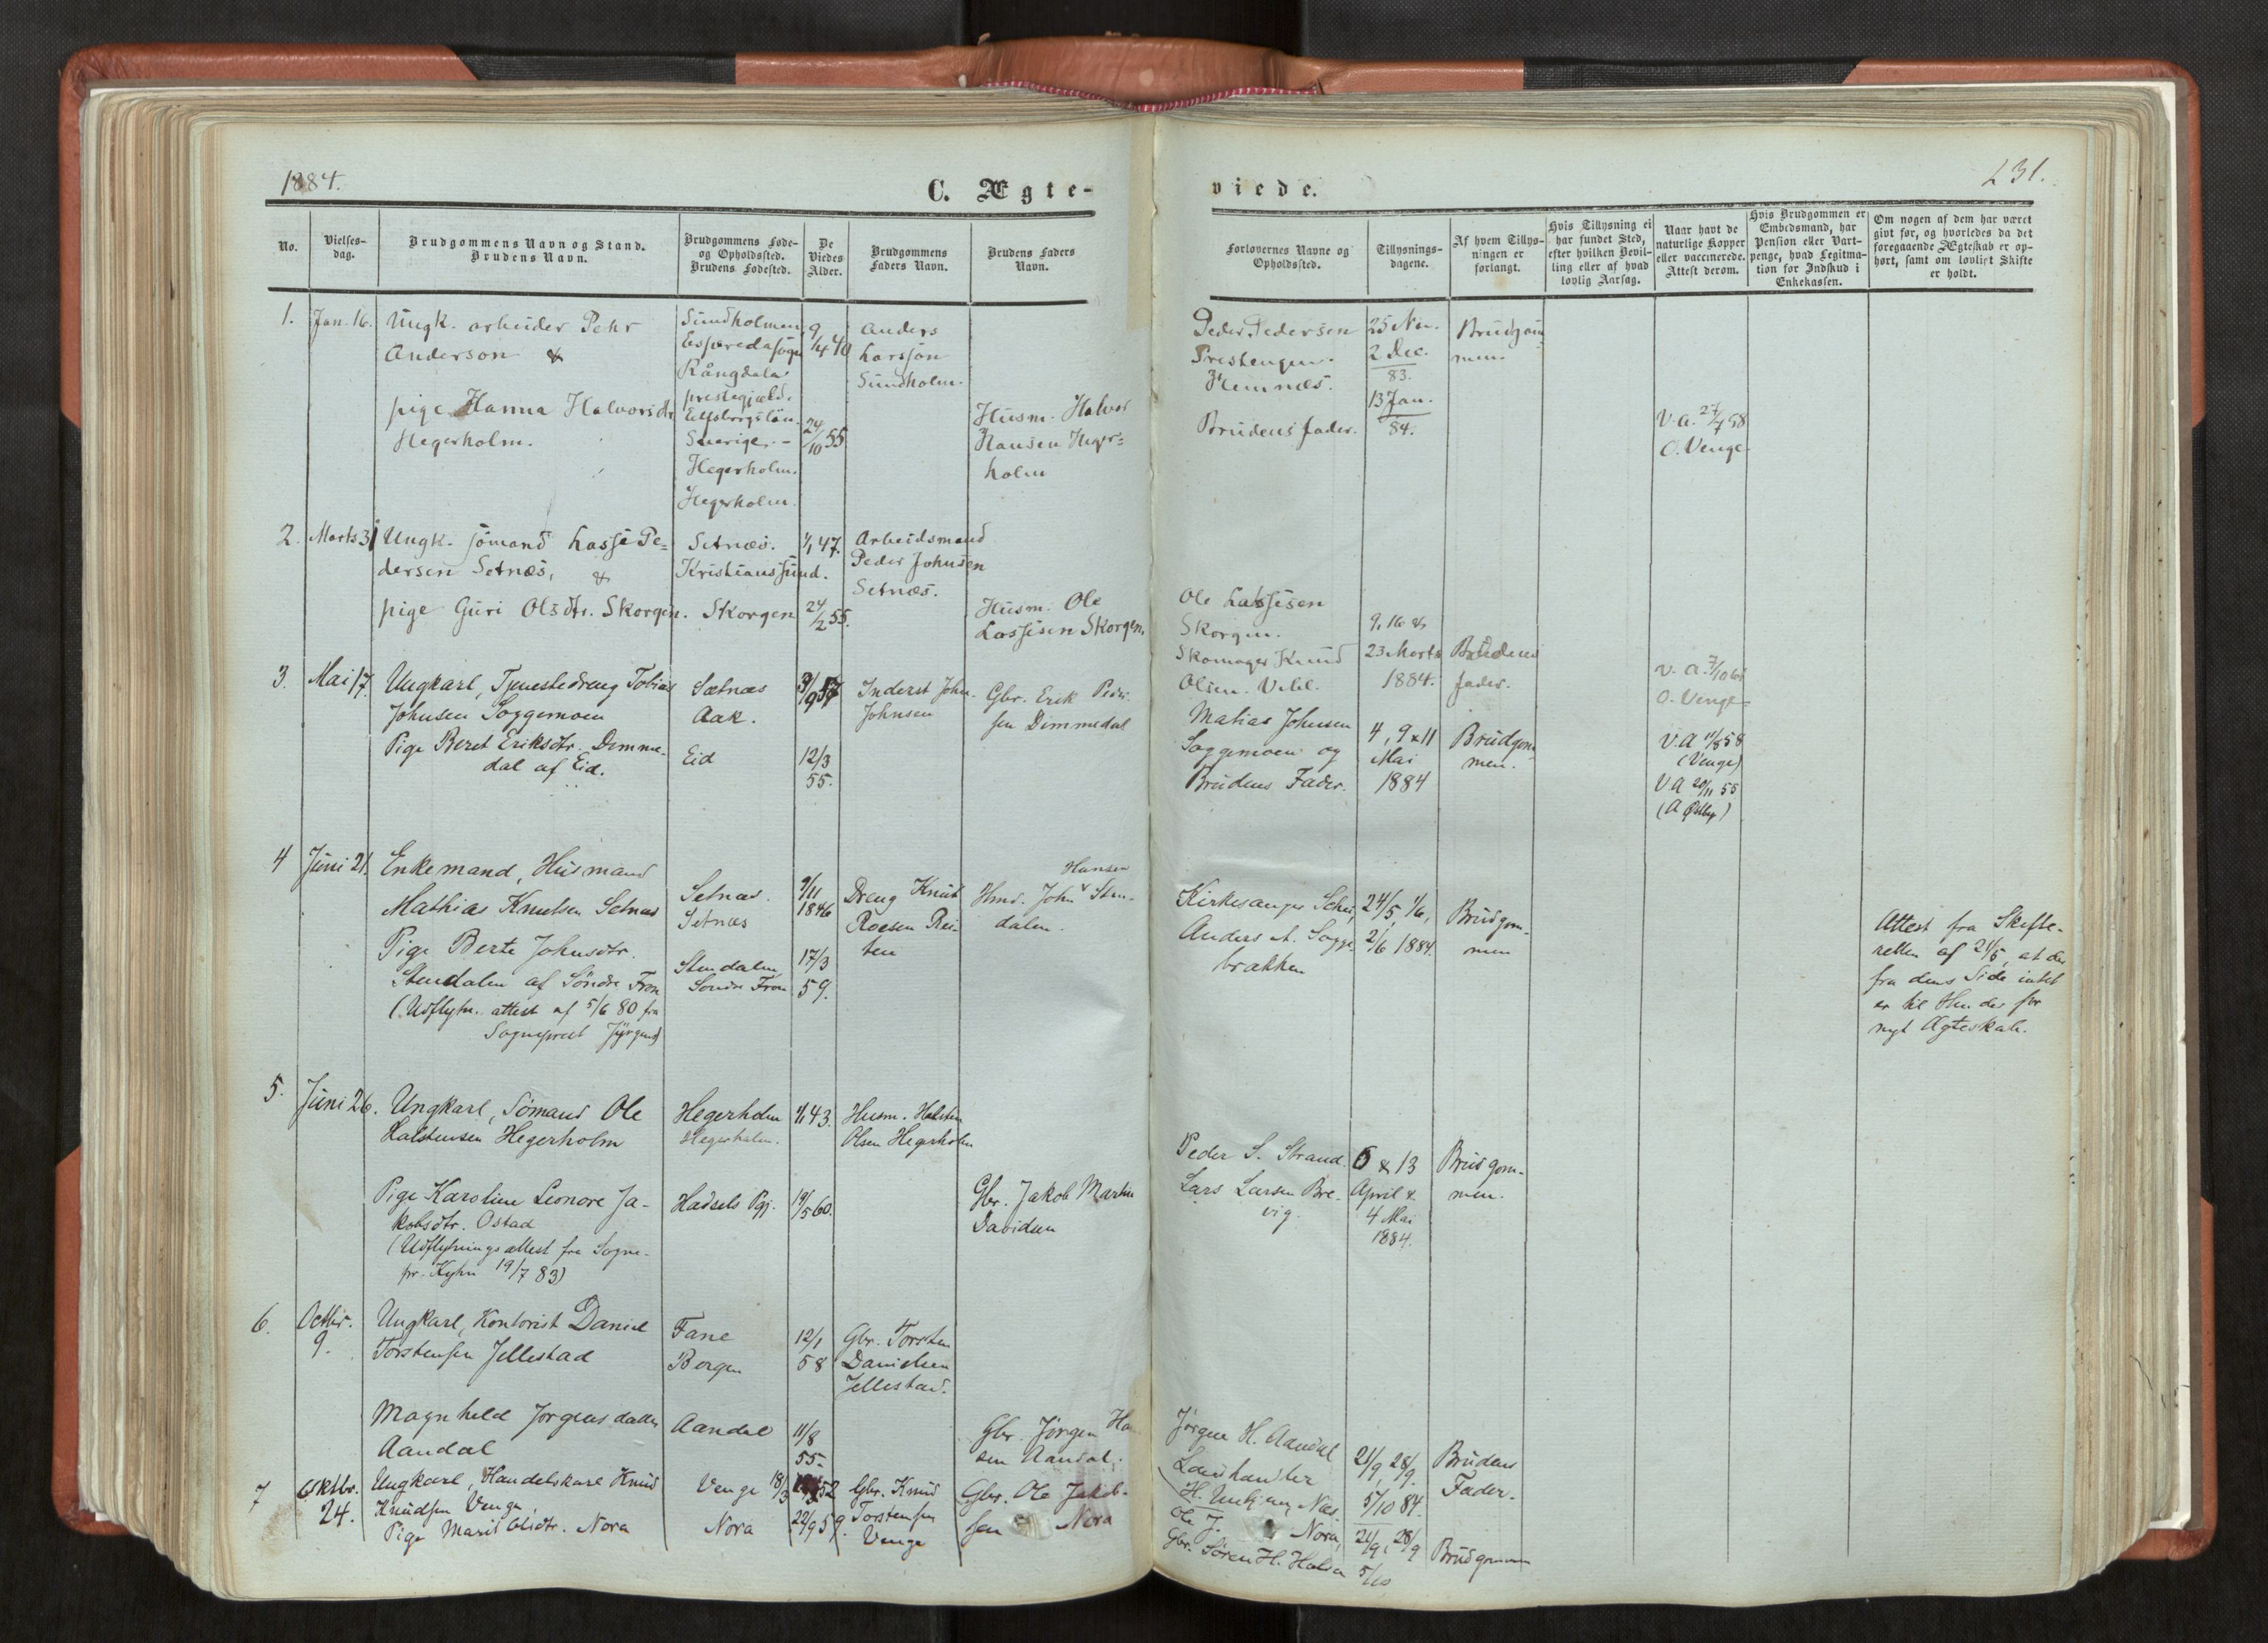 1884.
C. Ægte-
viede.
231.
No.
Vielses-
dag.
Brudgommens Navn og Stand.
Brudens Navn.
Brudgommens Føde-
og Opholdssted.
Brudens Fødested.
De
Viedes
Alder.
Brudgommens
Faders Navn.
Brudens Faders
Navn.
Forlovernes Navne og
Opholdssted.
Tillysnings-
dagene.
Af hvem Tillys-
ningen er
forlangt.
Hvis Tillysning ei
har fundet Sted,
efter hvilken Bevil-
ling eller af hvad
lovlig Aarsag.
Naar havt de
naturlige Kopper
eller vaccinerede.
Attest derom.
Hvis Brudgommen er
Embedsmand, har
Pension eller Vart-
penge, hvad Legitima-
tion for Indskud i
Enkekassen.
Om nogen af dem har været
givt før, og hvorledes da det
foregaaende Ægteskab er op-
hørt, samt om lovligt Skifte
er holdt.
1. Jan. 16.
Ungk. arbeider Pehr
Anderson &
pige Hanna Halvorsdtr
Hegerholm.
Sundholmen
Esperedasogn
Kångdala
prestegjæld.
Elfsborgslän
Sverige. -
Hegerholm.
Hegerholm.
9/4 40
24/10 55
Anders
Larsson
Sundholm.
Husm. Halvor
Hansen Heger=
holm
Peder Pedersen
Prestengen.
Hennæs.
Brudens fader.
25 Nov.
2 Dec.
83.
13 Jan.
84.
Brudgom
men.
V.a. 27/7 58
O. Venge.
2. Marts 31
Ungk. sömand Lasse Pe=
dersen Setnæs, &
pige Guri Olsdtr. Skorgen.
Setnæs.
Kristianssund.
Skorgen
1/1 47.
24/2 55.
Arbeidsmand
Peder Johnsen
Setnæs.
Husm. Ole
Lassesen Skorgen.
Ole Lassesen
Skorgen.
Skomager Knud
Olsen. Vebl.
9, 16 &
23 Marts
1884.
Brudens
fader.
v. a. 7/10 61
O. Venge
3. Mai 17.
Ungkarl, Tjenestedreng Tobias
Johnsen Soggemoen
Pige Beret Eriksdtr. Dimme-
dal af Eid.
Sætnæs
Aak.
Eid
3/9 57
12/3
55.
Inderst John
Johnsen
Gbr. Erik Peder
sen Dimmedal
Matias Johnsen
Soggemoen og
Brudens Fader.
4, 9 & 11
Mai
1884
Brudgom
men.
V.A 11/8 58
(Venge)
V.A 20/11 55
(A Østby)
4 Juni 21.
Enkemand, Husmand
Mathias Knutsen Setnæs
Pige Berte Johnsdtr.
Stendalen af Söndre Fron
(Udflytn. attest af 5/6 80 fra
Sogneprest
Setnæs.
Setnæs
Stendalen
Söndre Fron
9/11
1846
17/3
59.
Dreng Knut
Roesen Rei-
ten
Hansen
Hmd. John v Sten-
dalen.
Kirkesanger Schei,
Anders A. Sogge-
brakken
24/5, 1/6,
2/6 1884.
Brudgom-
men
Attest fra Skifte-
retten af 21/5, at der
fra dens Side intet
er til Hinder for
nyt Ægteskab.
5. Juni 26.
Ungkarl, Sömand Ole
Halstensen Hegerholm
Pige Karoline Leonore Ja-
kobsdtr. Ostad
(Udflytnings attest fra Sogne-
pr. Kyhn 19/7 83)
Hegerholm
Hegerholm.
Hadsels Pgj.
1/1 43.
14/5 60.
Husm. Halsten
Olsen Hegerholm
Gbr. Jakob Martin
Davidsen
Peder S. Strand.
Lars Larsen Bre-
vig.
6 & 13
April &
4 Mai
1884.
Brudgom-
men.
6. Octbr.
9.
Ungkarl, Kontorist Daniel
Torstensen Jellestad
Magnhild Jorgensdatter
Aandal
Fane
Bergen
Aandal
12/1
58
11/8
55.
Gbr. Torsten
Danielsen
Jellestad.
Gbr. Jörgen Han
sen Aandal.
Jörgen H. Aandal
Landhandler
H. Unhjem, Næs.
21/9, 28/9.
5/10 84.
Brudens
Fader.
7 Oktbr.
24.
Ungkarl, Handelskarl Knud
Knudsen Venge,
Pige Marit Olsdtr. Nora
Venge
Nora
18/3 52
22/9 59.
Gbr. Knud
Torstensen
Venge
Gbr. Ole Jakob-
sen Nora
Ole J. Nora,
Gbr. Sören H. Halsa
21/9, 28/9
5/10
Brudgommen